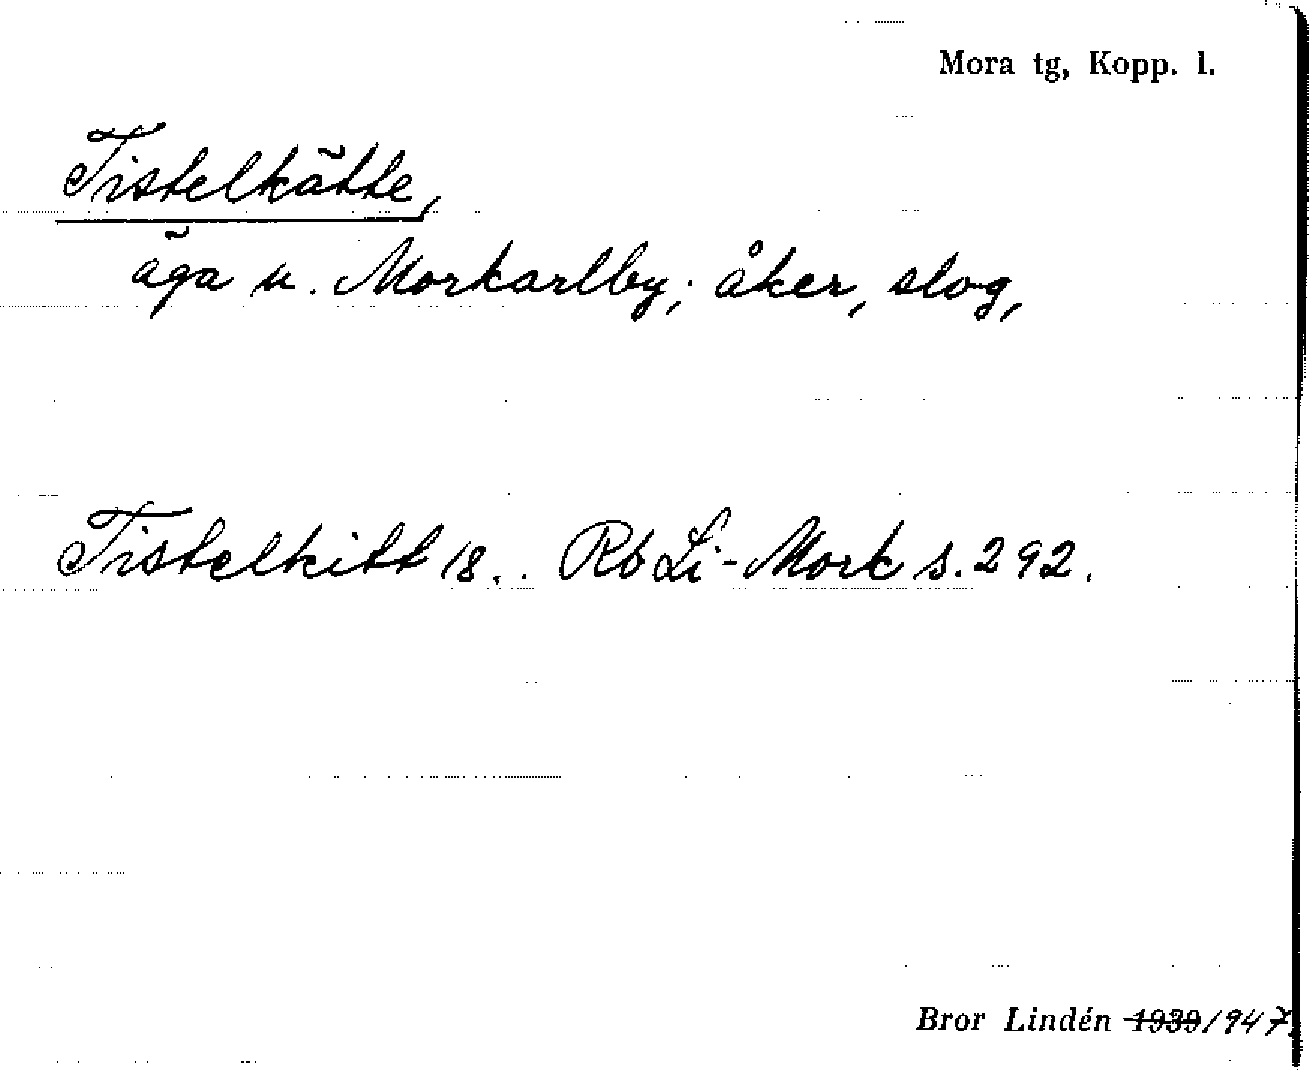 Mora tg, Kopp. l.
Tistelkätte,
äga u. Morkarlby; åker, slog,
Tistelkitt 18.. Rb Li-Mork s. 292.
Bror Lindén 1939/947